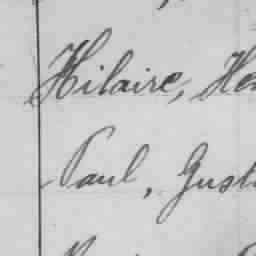 Hilaire, He
Paul, Gust